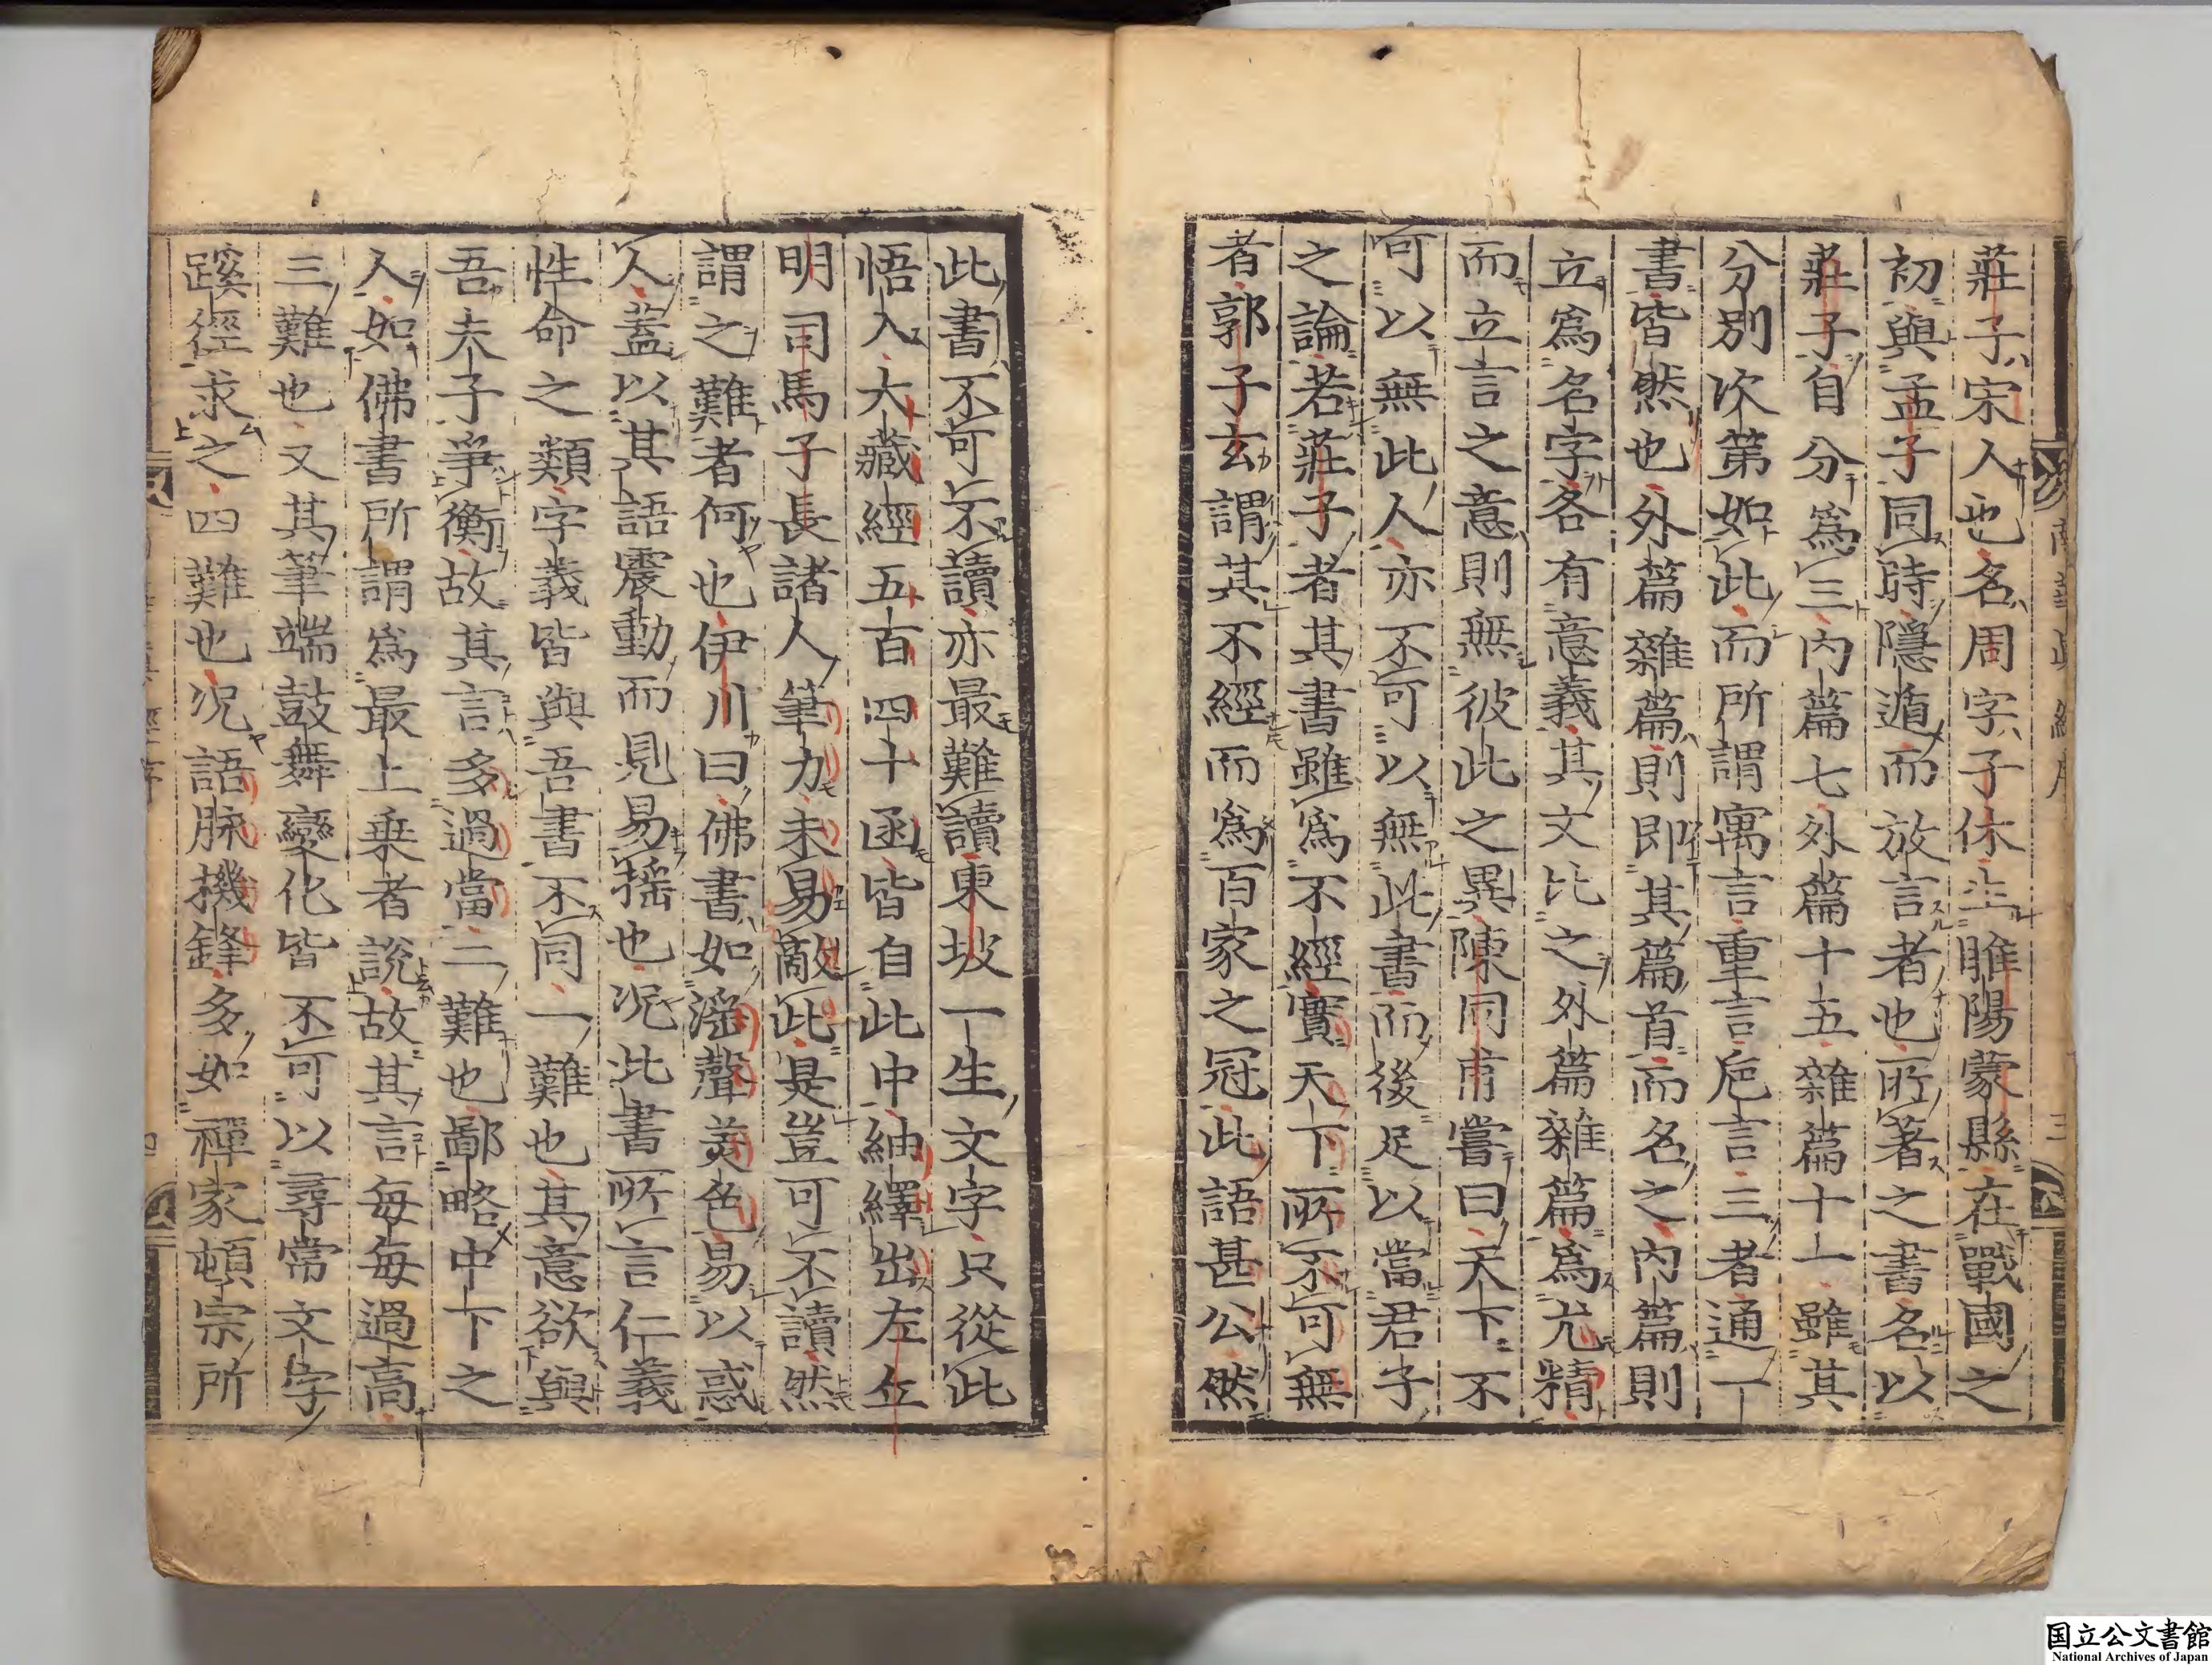 莊子宋人也名周字子休生睢陽蒙縣在戰國之
初與孟子同時隱遁而放言者也所著之書名以
莊子自分爲三內篇七外篇十五雜篇十一雖其
分別次第如此而所謂寓言重言巵言三者通一
書皆然也外篇雜篇則即其篇首而名之內篇則
立爲名字各有意義其文比之外篇雜篇爲尤精
而立言之意則無彼此之異陳同甫嘗曰天下不
可以無此人亦不可以無此書而後足以當君子
之論若莊子者其書雖爲不經實天下所不可無
者郭子玄謂其不經而爲百家之冠此語甚公然
此書不可不讀亦最難讀東坡一生文字只從此
悟入大藏經五百四十函皆自此中紬繹出左丘
明司馬子長諸人筆力未易敵此是豈可不讀然
謂之難者何也伊川曰佛書如淫聲美色易以惑
人蓋以其語震動而見易搖也況此書所言仁義
性命之類字義皆與吾書不同一難也其意欲與
吾夫子爭衡故其言多過當二難也鄙略中下之
人如佛書所謂爲最上乗者說故其言每每過高
三難也又其筆端鼓舞變化皆不可以尋常文字
蹊徑求之四難也況語脉機鋒多如禪家頓宗所
国立公文書館
National Archives of Japan